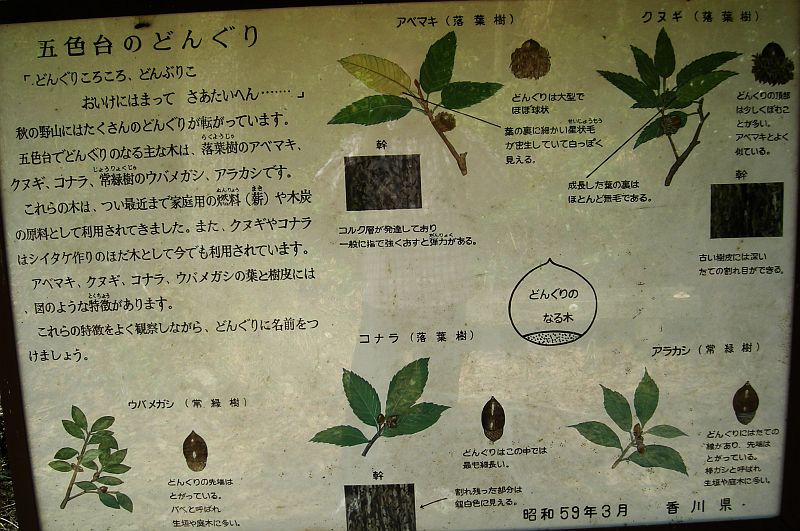 五色台のどんぐり
「どんぐりころころ、どんぶりこ
おいけにはまって さあたいへん……… 」
秋の野山にはたくさんのどんぐりが転がっています。
五色台でどんぐりのなる主な木は、落葉樹のアベマキ、
クヌギ、コナラ、常緑樹のウバメガシ、アラカシです。
これらの木は、つい最近まで家庭用の燃料(薪)や木炭
の原料として利用されてきました。また、クヌギやコナラ
はシイタケ作りのほだ木として今でも利用されています。
アベマキ、クヌギ、コナラ、ウバメガシの葉と樹皮には
、図のような特徴があります。
これらの特徴をよく観察しながら、どんぐりに名前をつ
けましょう。
アベマキ(落葉樹)
どんぐりは大型で
ほぼ球状
葉の裏に細かい星状毛
が密生していて白っぽく
見える。
幹
コルク層が発達しており
一般に指で強くおすと弾力がある。
クヌギ(落葉樹)
どんぐりの頂部
は少しくぼむこ
とが多い。
アベマキとよく
似ている。
成長した葉の裏は
ほとんど無毛である。
幹
古い樹皮には深い
たての割れ目ができる。
どんぐりの
なる木
ウバメガシ(常緑樹)
どんぐりの先端は
とがっている。
バベと呼ばれ
生垣や庭木に多い。
コナラ(落葉樹)
どんぐりはこの中では
最も細長い。
幹
割れ残った部分は
銀白色に見える。
アラカシ(常緑樹)
どんぐりにはたての
線があり、先端は
とがっている。
棒ガシと呼ばれ
生垣や庭木に多い。
昭和59年3月 香川県